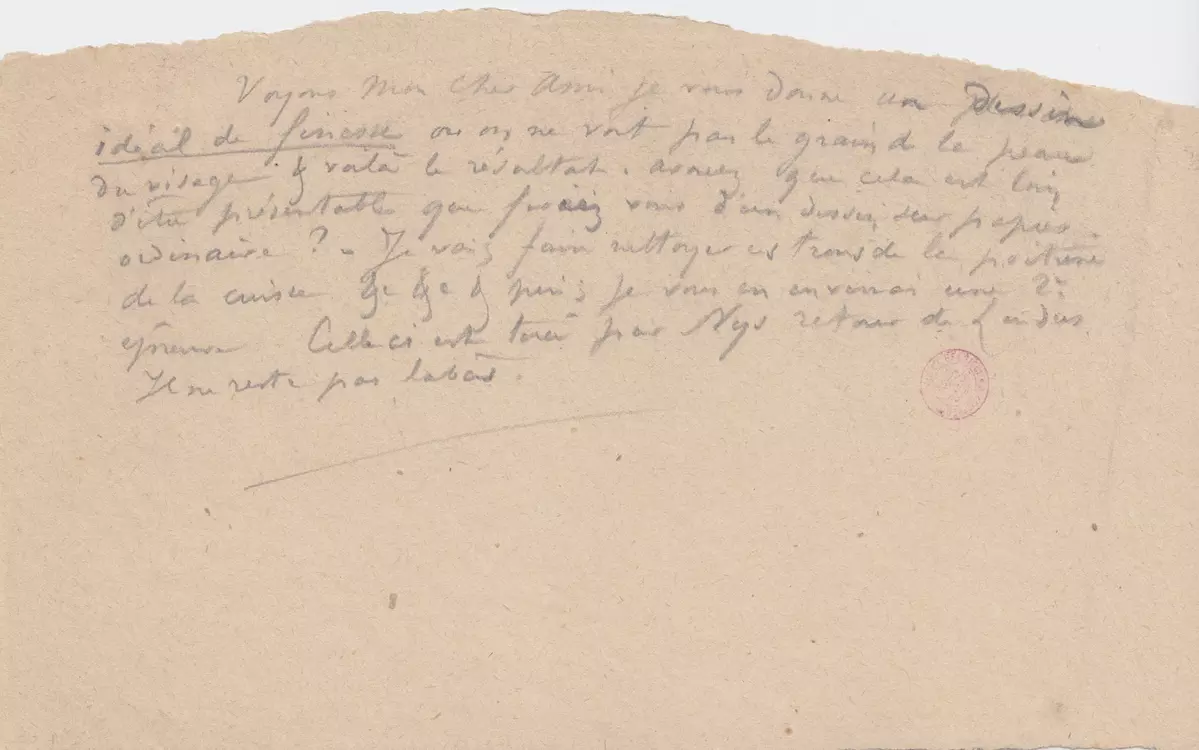 Voyons Mon cher Ami je vous donne un dessin
idéal de finesse ou on ne voit pas le grain de la peau
du visage & voilà le résultat. avouez que cela est loin
d'être présentable que feriez vous d'un dessin sur papier
ordinaire ? - Je vais faire nettoyer ces trous de la poitrine
de la cuisse &c &c & puis je vous en enverrai une 2e
épreuve Celle ci est tirée par Nys retour de
Il ne reste pas labas.